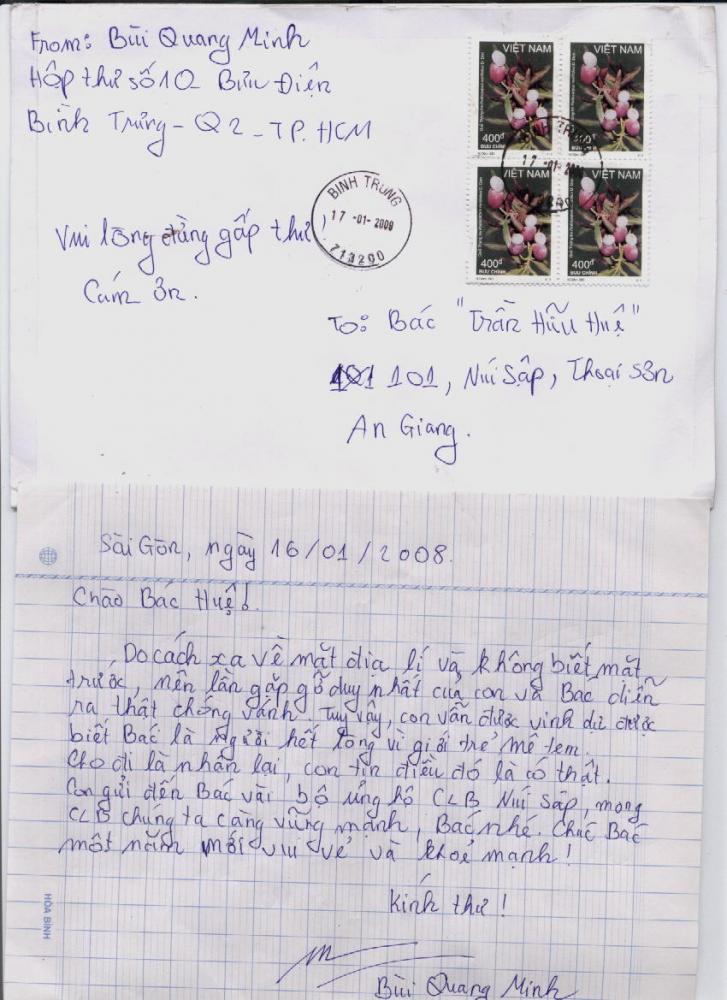 From: Bùi Quang Minh
Hộp thư số 10 Bưu Điện
Bình Trưng - Q2 - TP. HCM
VIỆT NAM
VIỆT NAM
400đ
BƯU CHÍNH
400đ
VIỆT NAM
VIỆT NAM
400đ
BƯU CHÍNH
400đ
BƯU CHÍNH
17 -01- 20
BINH TRUNG
17 -01- 2009
713290
Vui lòng đừng gấp thư!
Cám ơn.
To: Bác "Trần Hữu Huệ"
101, Núi Sập, Thoại Sơn
An Giang.
Sài Gòn, ngày 16/01/2008.
Chào Bác Huệ!
Do cách xa về mặt địa lí và không biết mặt
trước, nên lần gặp gỡ duy nhất của con và Bác diễn
ra thật chóng vánh. Tuy vậy, con vẫn được vinh dự được
biết Bác là người hết lòng vì giới trẻ mê tem.
Cho đi là nhận lại, con tin điều đó là có thật.
Con gửi đến Bác vài bộ ủng hộ CLB Núi Sập, mong
CLB chúng ta càng vững mạnh, Bác nhé. Chúc Bác
một năm mới vui vẻ và khoẻ mạnh!
Kính thư!
Bùi Quang Minh
HÒA BÌNH